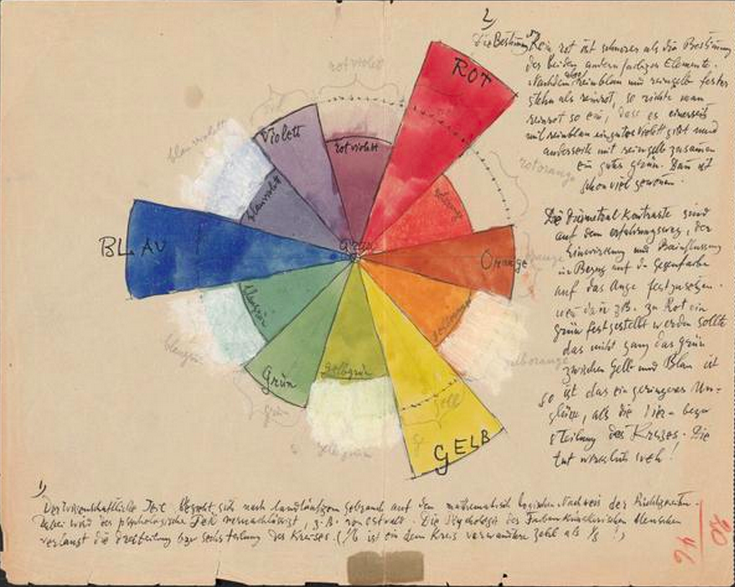 2)
Die Bestimmung Rein rot ist schwerer als die Bestimmung
der beiden andern farbigen Elemente.
Nachdem aber reinblau und reingelb fester
stehn als reinrot, so richte man
reinrot so ein, dass es einerseits
mit reinblau ein gutes violett gibt und
anderseits mit reingelb zusammen
ein gutes grün. Dann ist
schon viel gewonnen.
Die Diametral Kontraste sind
auf dem erfahrungsweg, der
Einwirkung und Beeinflussung
in Bezug auf die Gegenfarbe
auf das Auge festzusetzen.
wenn dann z.B. zu Rot ein
grün festgestellt werden sollte
das nicht ganz das grün
zwischen Gelb und Blau ist
so ist das ein geringeres Un-
glück, als die
teilung des Kreises. Die
tut wirklich weh!
rotviolett
ROT
violett
rotviolett
blauviolett
blauviolett
rotorange
rotorange
BLAU
Grau
Orange
orange
blaugrün
gelborange
gelborange
blaugrün
Grün
gelbgrün
gelb
grün
gelbgrün
GELB
1)
Der wissenschaftliche Teil begeht sich nach landläufigem gebrauch auf den mathematisch logischen Nachweis der Richtigkeiten.
Dabei wird der psychologische Teil vernachlässigt, z.B. von Ostwald. Die Psychologie des Farbenkünstlerischen Menschen
verlangt die dreiteilung bzw sechsteilung des Kreises (1/6 ist ein dem Kreis verwandtere Zahl als 1/8 !)